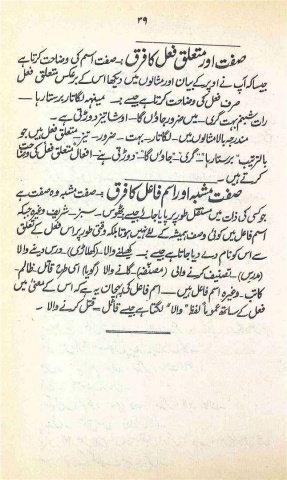 ۲۹
صفت اور متعلق فعل کا فرق :۔ صفت اسم کی وضاحت کرتا ہے
جیسا کہ آپ نے اوپر کے بیان اور مثالوں میں دیکھا اس کے برعکس متعلق فعل
صرف فعل کی وضاحت کرتا ہے جیسے :۔ مینہہ لگاتار برستا رہا۔
رات شبنم بہت گری۔ میں ضرور جاؤں گا۔ اوشا تیز دوڑتی ہے۔
مندرجہ بالا مثالوں میں۔ لگاتار۔ بہت۔ ضرور۔ تیز۔ متعلق فعل ہیں جو
بالترتیب "برستا رہا" گری۔ جاؤں گا۔ دوڑتی ہے۔ افعال کی وضاحت
کرتے ہیں۔
صفت مشبہ اور اسم فاعل کا فرق :۔ صفت مشبہ وہ صفت ہے
جو کسی کی ذات میں مستقل طور پر پایا جائے جیسے کنجوس۔ سبز۔ شریف وغیرہ جبکہ
اسم فاعل میں کوئی وصف ہمیشہ کے لئے نہیں ہوتا بلکہ وقتی طور پر اس فعل کے تعلق
سے اس کو نام دے دیا جاتا ہے جیسے :۔ کھیلنے والا۔ (کھلاڑی) درس دینے والا
(مدرس)۔ تصنیف کرنے والی (مصنفہ) گانے والا (گویا) اسی طرح قاتل۔ ظالم۔
کاتب۔ وغیرہ اسم فاعل ہیں۔ اسم فاعل کی پہچان یہ ہے کہ اس کے معنی میں
فعل کے ساتھ عموماً لفظ "والا" لگتا ہے جیسے قاتل = قتل کرنے والا۔